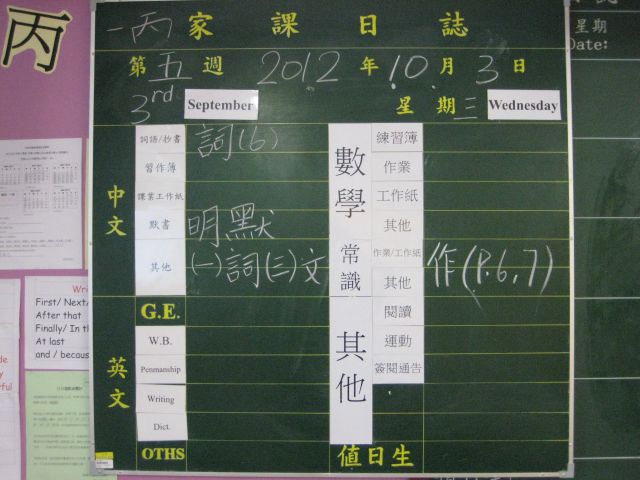 丙
一丙家課日誌
第五週 2012年10月3日
3rd September 星期三 Wednesday
中文
詞語/抄書 詞(6)
習作簿
課業工作紙
默書 明默
其他 (一)詞(三)文
英文
G.E.
W.B.
Penmanship
Writing
Dict.
OTHS
數學
練習簿
作業
工作紙
其他
常識
作業/工作紙 作(P.6,7)
其他
其他
閱讀
運動
簽閱通告
值日生
星期
Date:
First/ Next/
After that
Finally/ In th
At last
and / becaus